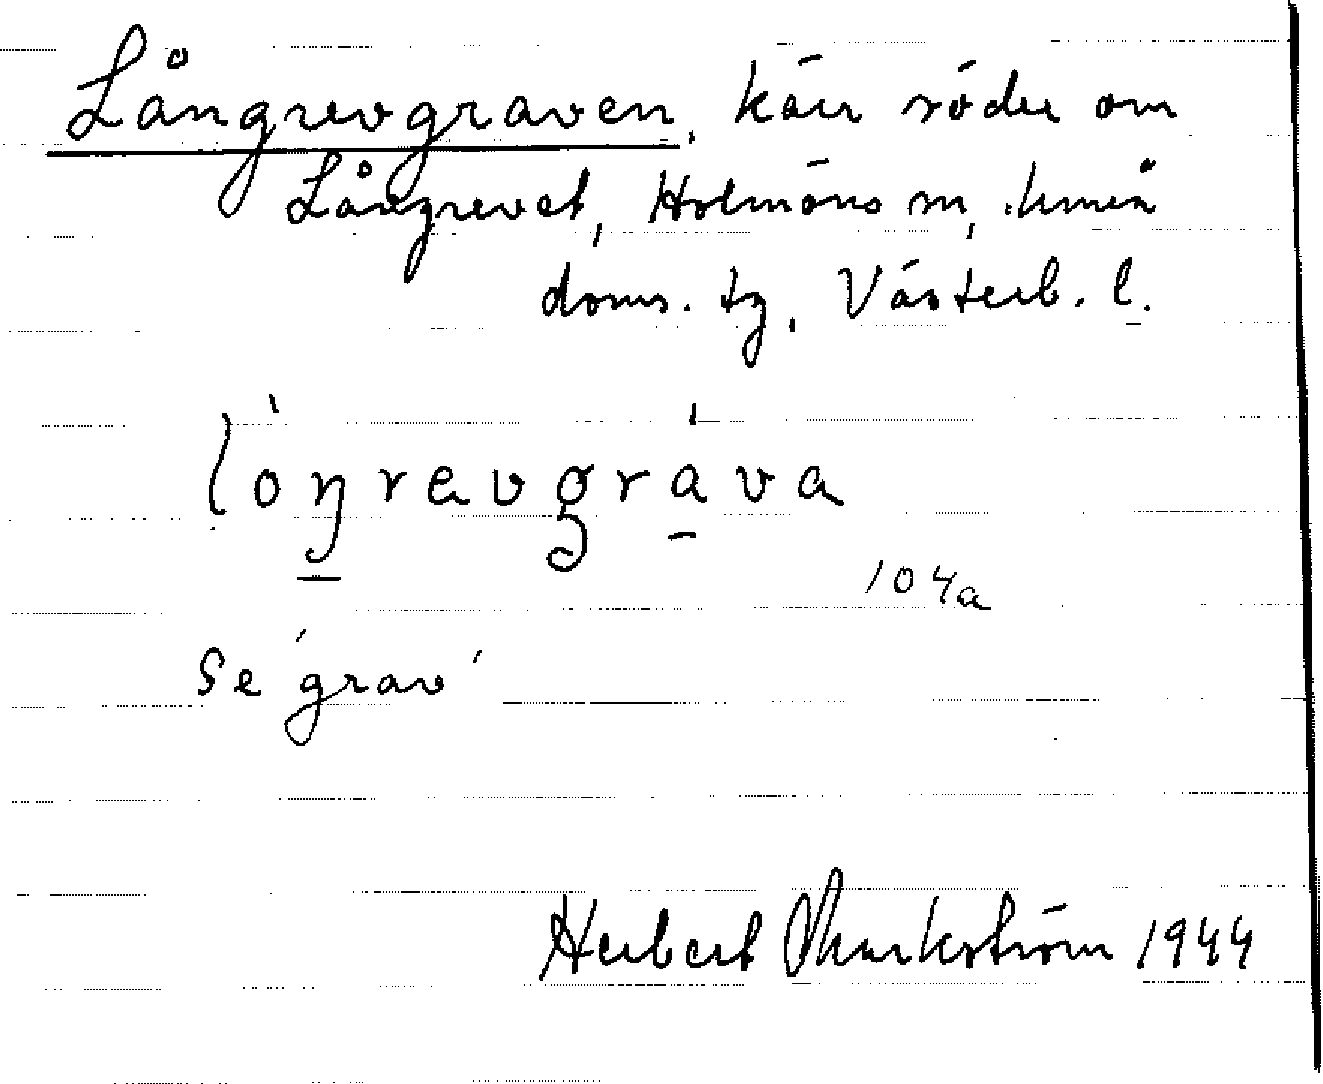 Långrevgraven, kärr söder om
Långrevet, Holmöns sn, Umeå
doms. tg, Västerb. l.
lòŋrevgráva
104a
Se 'grav'
Herbert Markström 1944